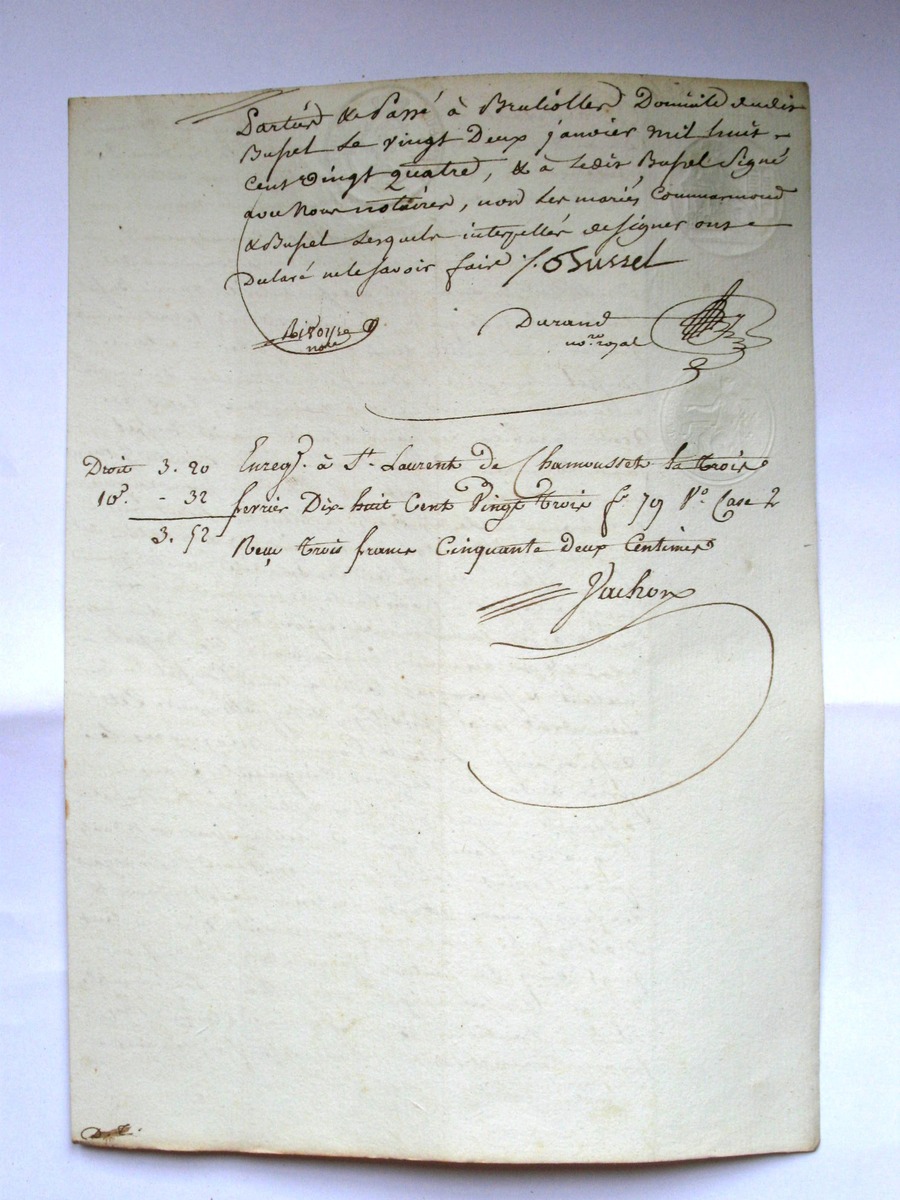 parties & Passé à Brullioles Domicile dudit
Bussel Le vingt Deux janvier mil huit
Cent vingt quatre, & a Ledit Bussel Signé
avec Nous notaires, non Les mariés Commarmond
& Bussel Lesquels interpellés de signer ont
Declaré ne le Savoir faire ./. Bussel
Rivoyre
nore
Durand
nore. royal
Droit 3. 20 Enregt. à St. Laurent de Chamousset le trois
10e. - 32 fevrier Dix-huit Cent Vingt trois fo 79 Vo. Case 2
3. 52 Reçu trois francs Cinquante Deux Centimes
Vachon